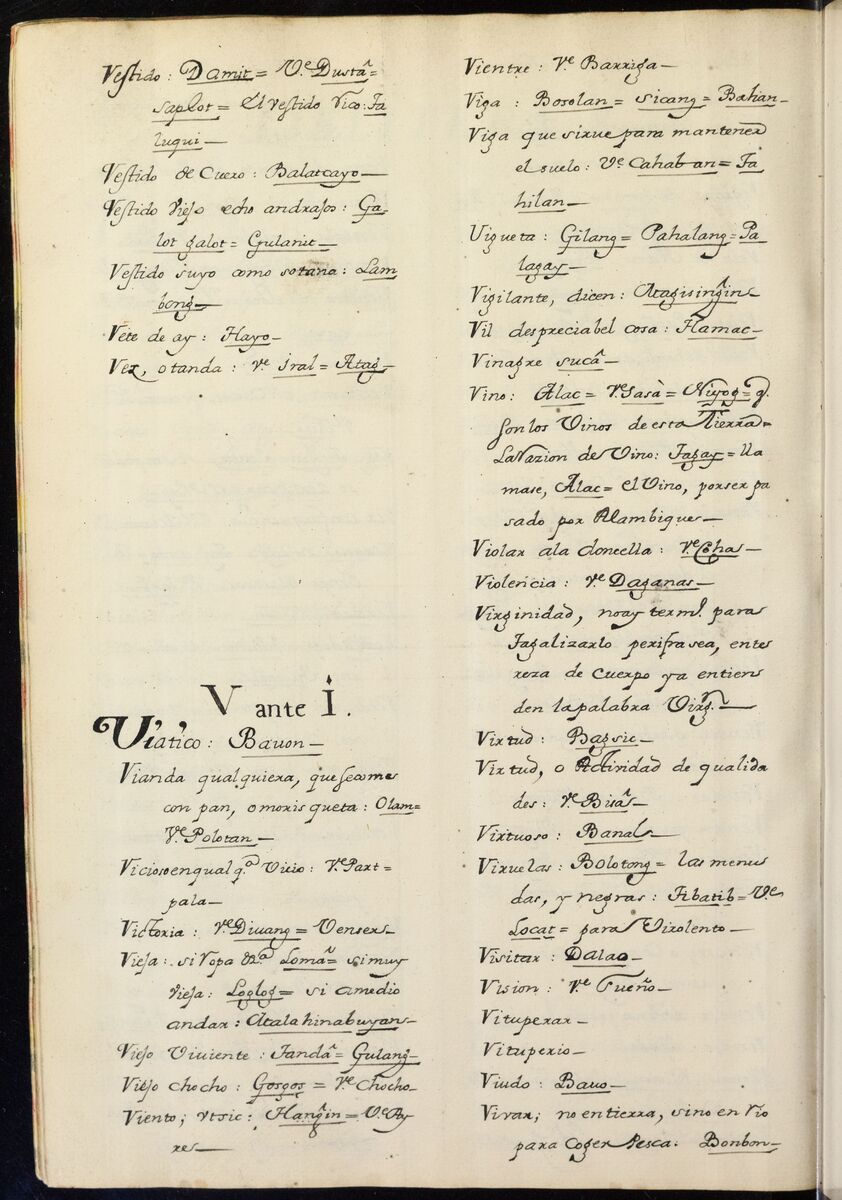 Vestido: Damit= Ve. Dustâ=
saplot= El vestido rico: Ta
luqui—
Vestido de Cuero: Balatcayo—
Vestido viejo echo andrajos: Ga-
lot galot= Gulanit—
Vestido suyo como sotana: Lam
bong—
Vete de ay: Hayo—
Vez, o tanda: ve. iral= Atag—
V ante I.
Viatico: Bauon—
Vianda qualquiera, que se come
con pan, o morisqueta: Olam=
Ve. Polotan—
Vicioso en qualq.a Vicio: Ve. Part=
pala—
Victoria: ve. Diuang= Venser—
Vieja: si ropa &.a Lomâ= si muy
vieja: Loglog= si a medio
andar: Atalahinabuyan—
Viejo Viuiente: Tandâ= Gulang—
Viejo chocho: Gosgos= ve. Chocho—
Viento; vt sic: Hangin= Ve. Ay
res—
Vientre: ve. Barriga—
Viga: Bosolan= Sicang= Bahian—
Viga que sirue para mantener
el suelo: ve. Cahaban= Ta
hilan—
Uigueta: Gilang= Pahalang= Pa
lagay—
Vigilante, dicen: Atagisingin—
Vil despreciabel cosa: Hamac—
Vinagre sucâ—
Vino: Alac= ve. Sasà= Niyog= q.
son los Vinos de esta Tierra=
La Razion de Vino: Tagay= lla
mase, Alac= el Vino, por ser pa
sado por Alambique—
Violar ala doncella: ve. Coha—
Violencia: ve. Daganas—
Virginidad, no ay term.o para
Tagalizarlo perifrasea, ente
reza de Cuerpo ya entien
den la palabra Virg.n—
Virtud: Bagsic—
Virtud, o Actiuidad de qualida
des: ve. Bisâ—
Virtuoso: Banal—
Viruelas: Bolotong= las menu
das, y negras: Tibatib= Ve.
Locat= para Virolento—
Visitar: Dalao—
Vision: ve. Sueño—
Vituperar—
Vituperio—
Viudo: Bauo—
Vivar; no en tierra, sino en rio
para Coger Pesca: Bonbon—